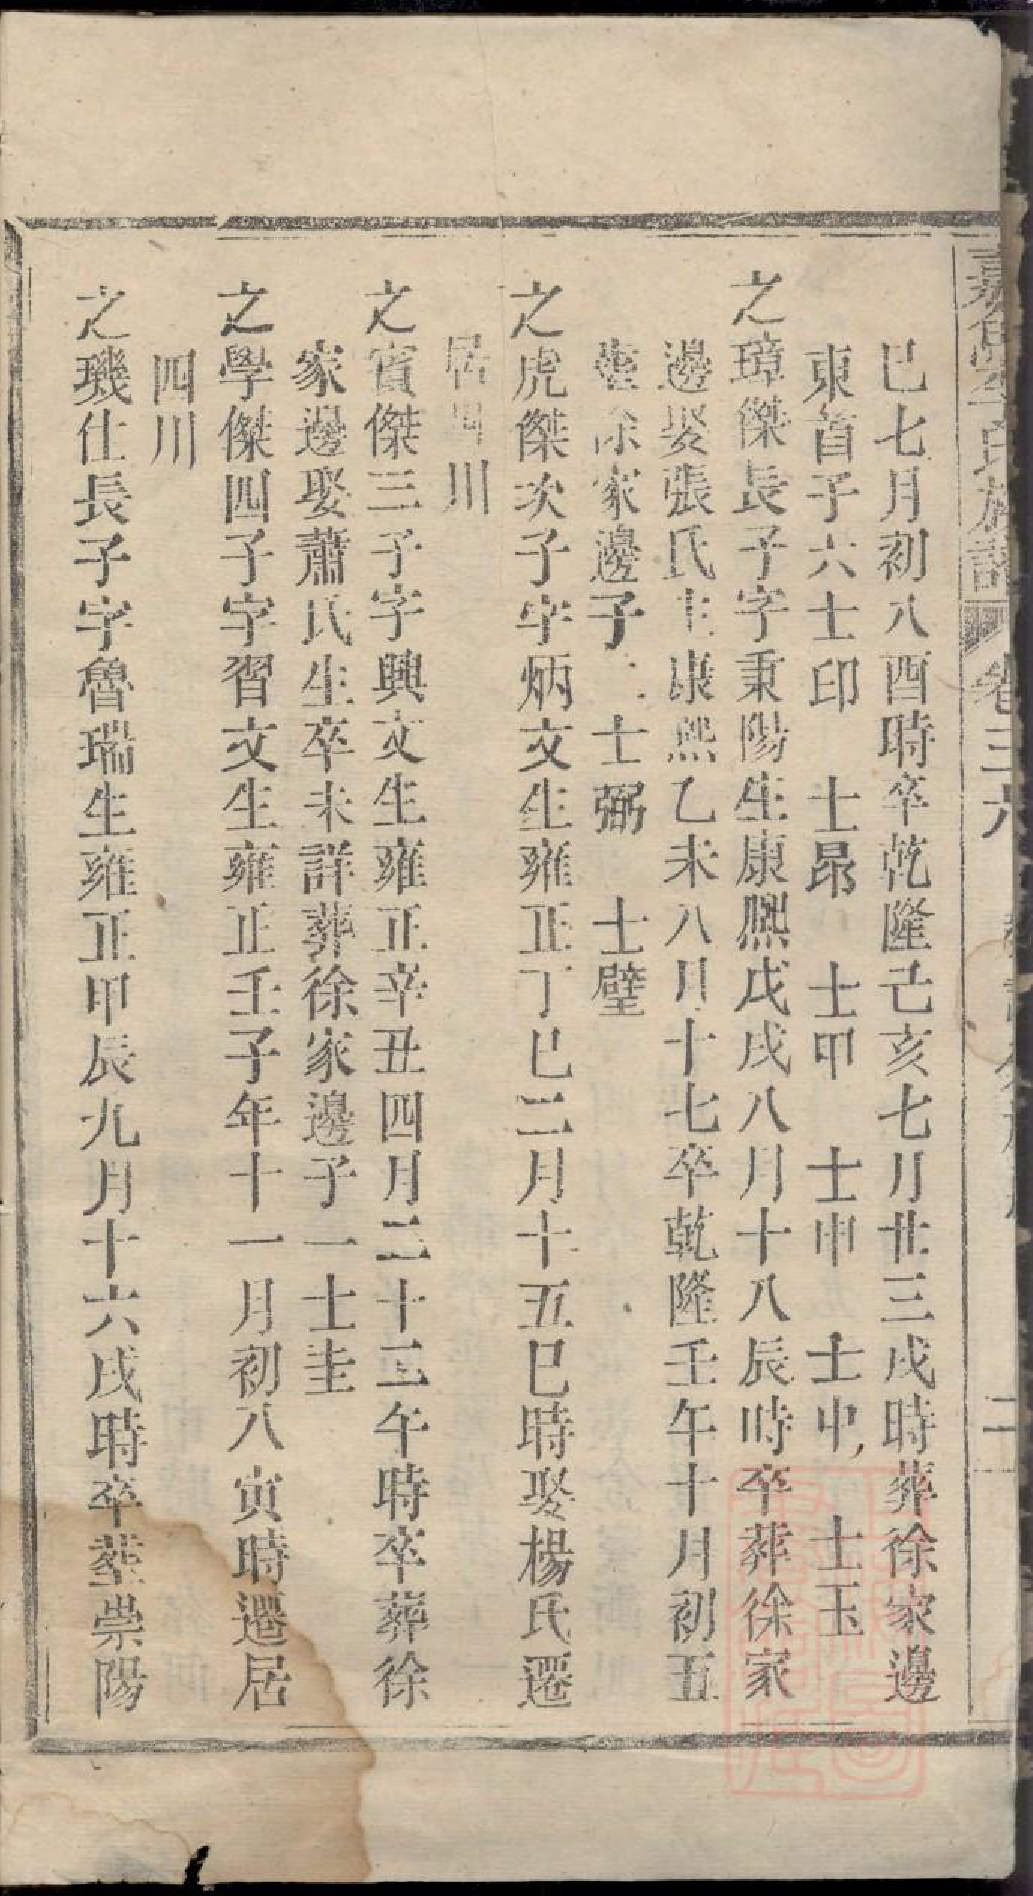 巳七月初八酉時卒乾隆己亥七月廿三戌時葬徐家邊
東首子六士印 士昂 士甲 士申 士中 士玉
之璋傑長子字秉陽生康熙戊戌八月十八辰時卒葬徐家
邊娶張氏生康熙乙未八月十七卒乾隆壬午十月初五
塟徐家邊子二士弼 士璧
之虎傑次子字炳文生雍正丁巳二月十五巳時娶楊氏遷
居四川
之賓傑三子字興文生雍正辛丑四月二十三午時卒葬徐
家邊娶蕭氏生卒未詳葬徐家邊子一士圭
之學傑四子字習文生雍正壬子年十一月初八寅時遷居
四川
之璣仕長子字魯瑞生雍正甲辰九月十六戌時卒塟崇陽